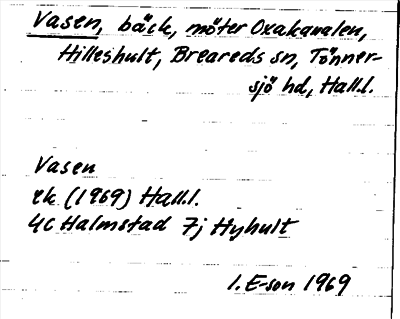 Vasen, bäck, möter Oxakawalen,
Hilleshult, Breareds sn, Tönner-
sjö hd, Hall.l.
Vasen
ek (1969) Hall.l.
4C Halmstad 7j Hyhult
I. E-son 1969